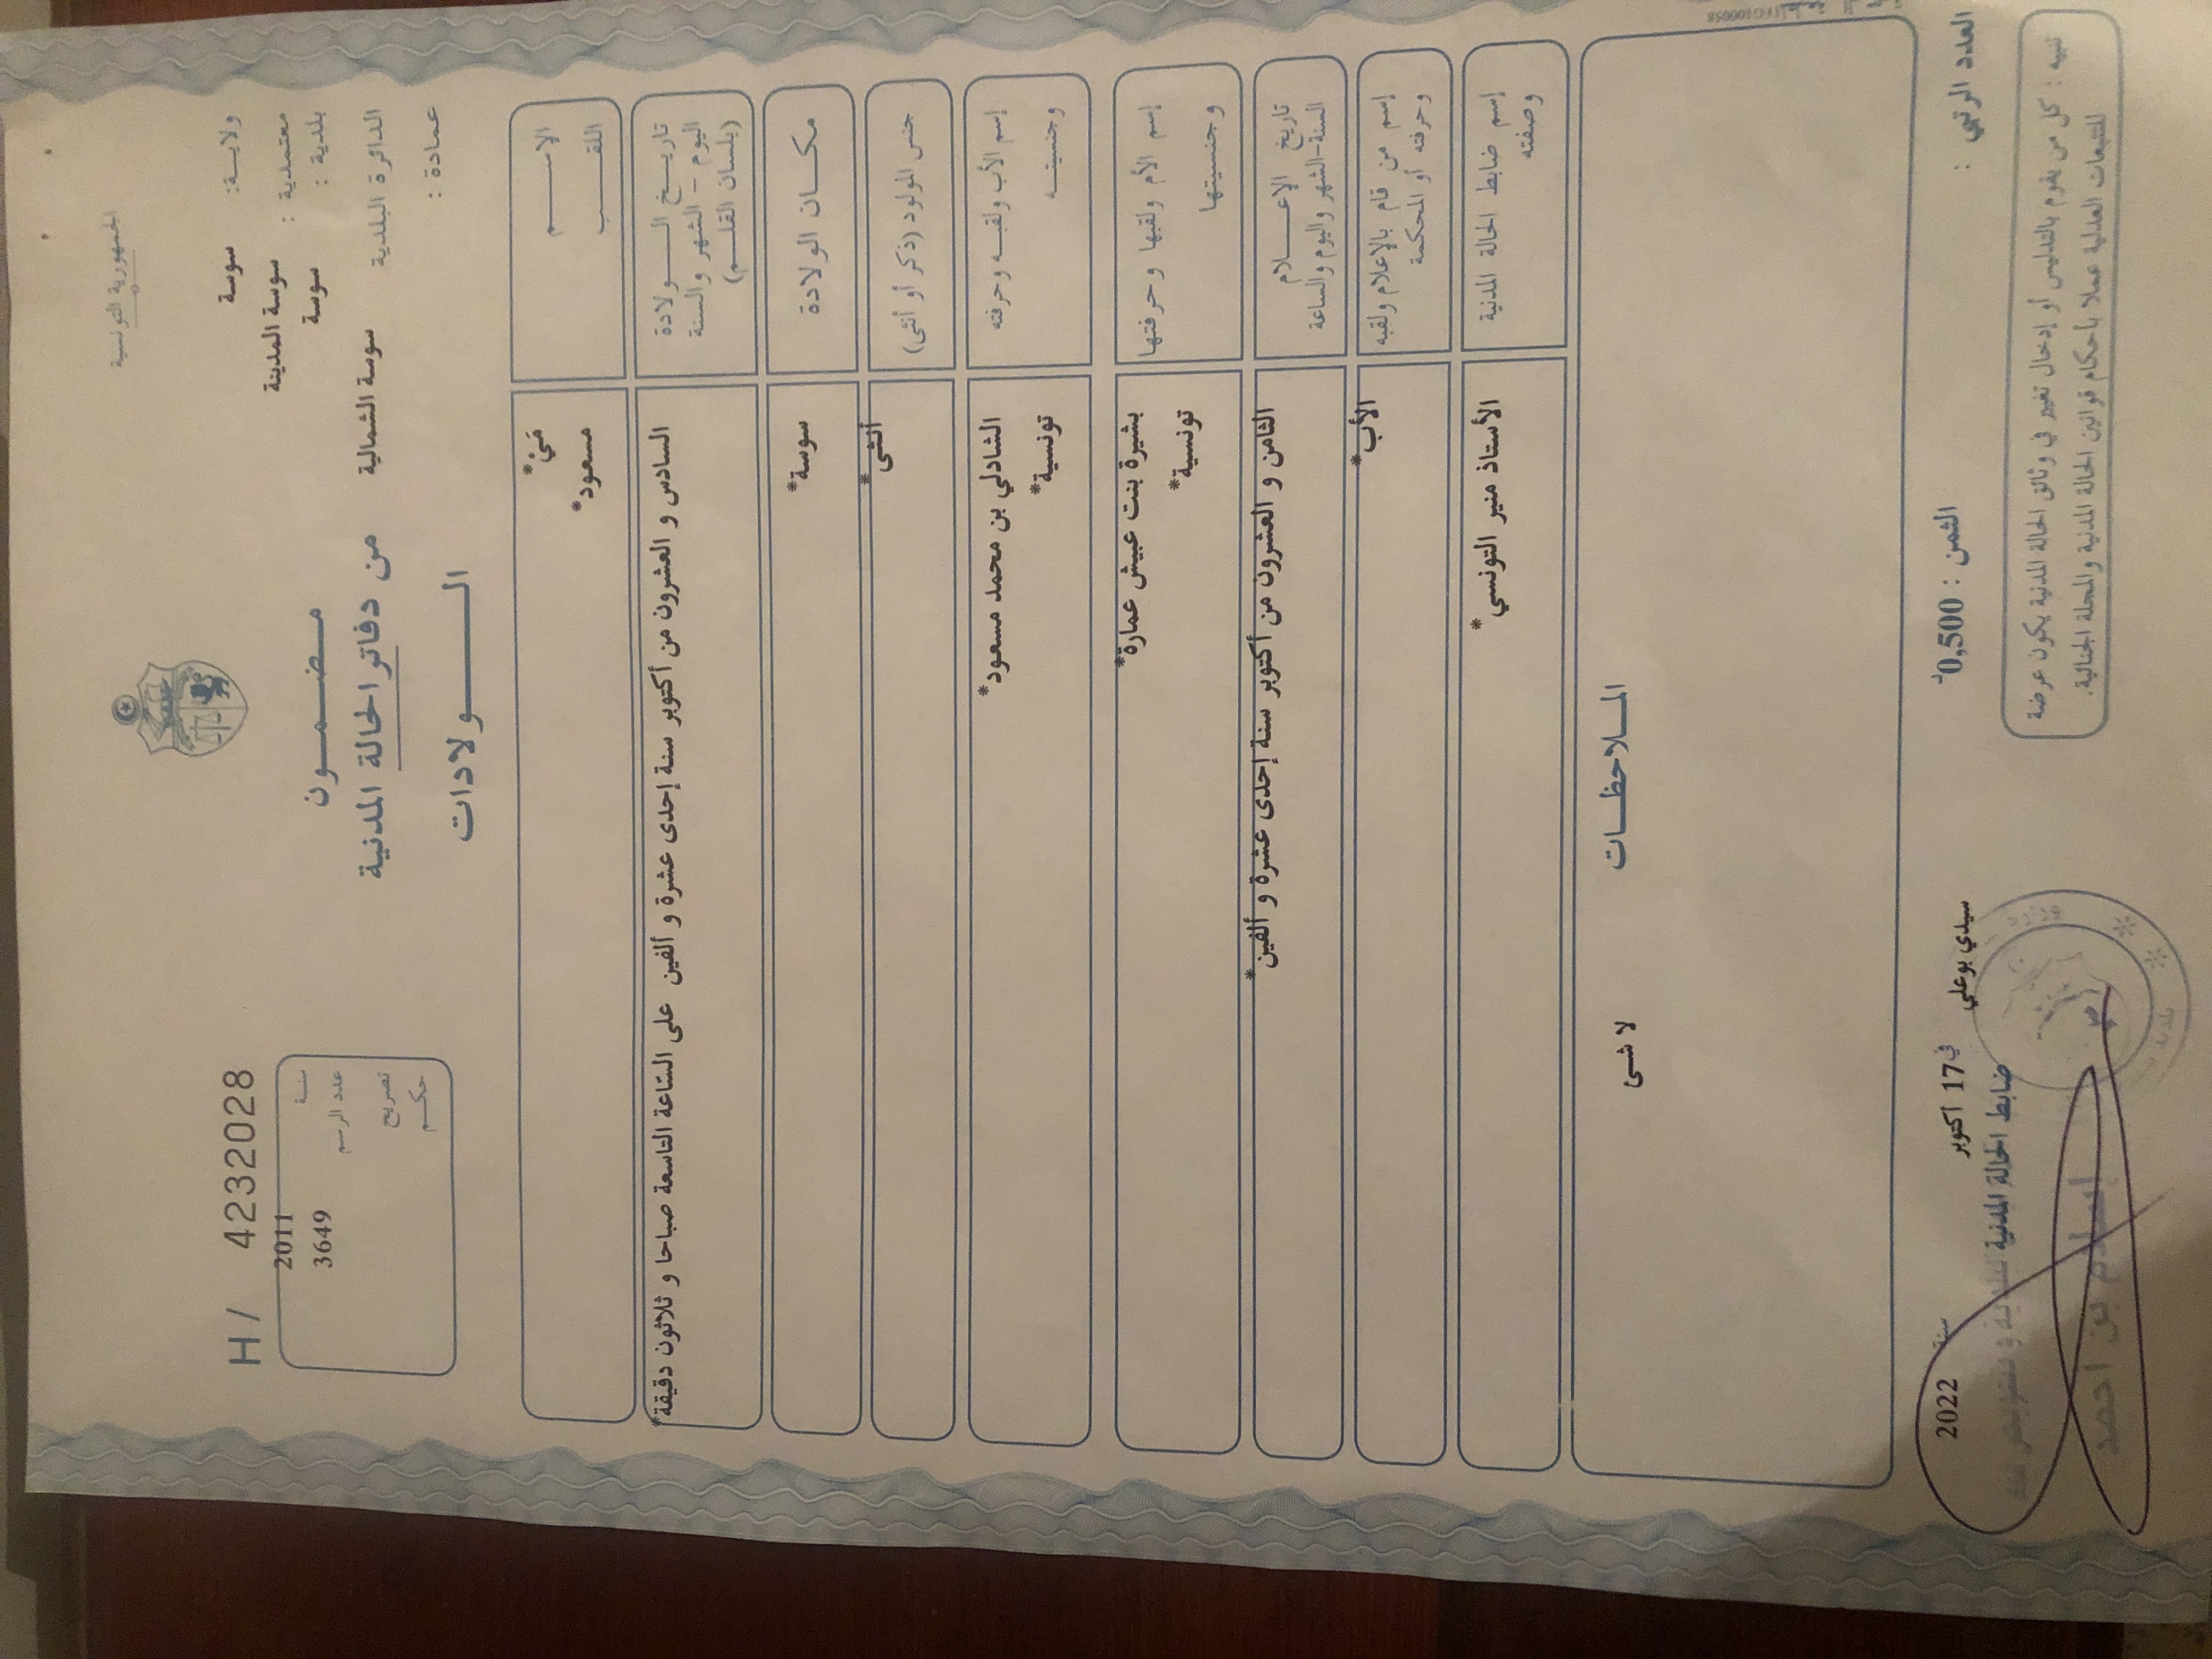 الجمهورية التونسية
H / 4232028
ولايـة: سوسة
معتمدية : سوسة المدينة
بلدية : سوسة
الدائرة البلدية سوسة الشمالية
عمادة :
سنـة 2011
عدد الرسم 3649
تصريح
حكـم
مـضـمـون
من دفاتر الحالة المدنية
الـــولادات
الإســـم
مَيْ*
اللقـب
مسعود*
تاريـخ الـــولادة
اليوم - الشهر والسنة
(بلسان القلـم)
السادس و العشرون من أكتوبر سنة إحدى عشرة و ألفين على السّاعة التاسعة صباحا و ثلاثون دقيقة*
مكـان الولادة
سوسة*
جنس المولود (ذكر أو أنثى)
أنثى*
إسم الأب ولقبـه وحرفته
الشاذلي بن محمد مسعود*
وجنسيتـه
تونسية*
إسم الأم ولقبها وحرفتها
بشيرة بنت عبيش عمارة*
وجنسيتها
تونسية*
تاريخ الإعـــلام
السنة-الشهر واليوم والساعة
الثامن و العشرون من أكتوبر سنة إحدى عشرة و ألفين*
إسم من قام بالإعلام ولقبه
وحرفته أو المحكمة
الأب*
إسم ضابط الحالة المدنية
وصفته
الأستاذ منير التونسي*
المـلاحظـات
لا شئ
العدد الرتبي :
الثمن : 0,500د
سيدي بوعلي في 17 أكتوبر سنة 2022
ضابط الحالة المدنية
تنبيه : كل من يقوم بالتدليس أو إدخال تغيير في وثائق الحالة المدنية يكون عرضة
للتتبعات العدلية عملا بأحكام قوانين الحالة المدنية والمجلة الجنائية.